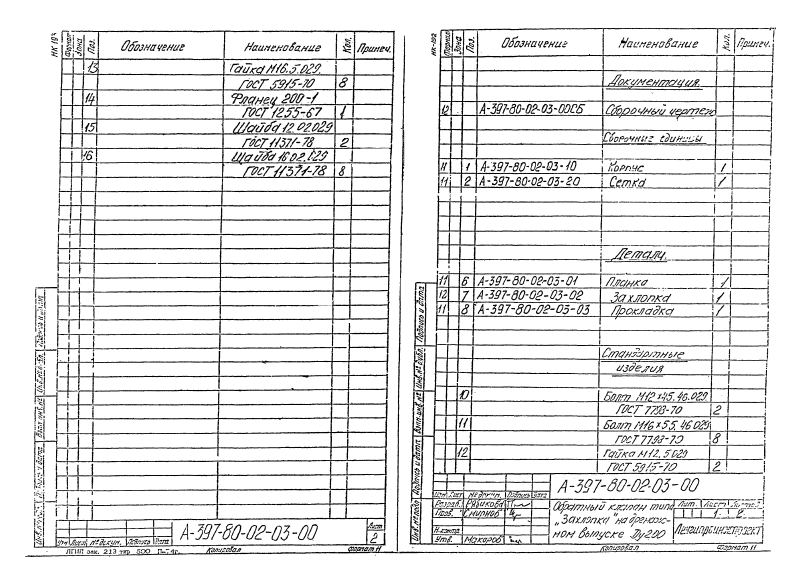 НК 192
Формат
Зона
Поз.
Обозначение
Наименование
Кол.
Примеч.
13 Гайка М16.5.029.
ГОСТ 5915-70 8
14 Фланец 200-1
ГОСТ 1255-67 1
15 Шайба 12.02.029
ГОСТ 11371-78 2
16 Шайба 16.02.029
ГОСТ 11371-78 8
А-397-80-02-03-00
Лист
2
Изм. Лист № докум. Подпись Дата
ЛГИП зак. 213 тир 500
Копировал
Формат 11
НК-192
Формат
Зона
Поз.
Обозначение
Наименование
Кол.
Примеч.
Документация
12 А-397-80-02-03-00СБ Сборочный чертеж
Сборочные единицы
11 1 А-397-80-02-03-10 Корпус 1
11 2 А-397-80-02-03-20 Сетка 1
Детали
11 6 А-397-80-02-03-01 Планка 1
12 7 А-397-80-02-03-02 Захлопка 1
11 8 А-397-80-02-03-03 Прокладка 1
Стандартные
изделия
10 Болт М12×45.46.029
ГОСТ 7798-70 2
11 Болт М16×55.46.029
ГОСТ 7798-70 8
12 Гайка М12.5.029
ГОСТ 5915-70 2
Подпись и дата
Инв.№ дубл.
Взам.инв.№
Подпись и дата
А-397-80-02-03-00
Изм Лист № докум. Подпись Дата
Разраб. Рябикова
Пров. Смирнов
Н.контр
Утв. Макаров
Обратный клапан типа
„Захлопка" на дренаж-
ном выпуске Ду200
Лит. Лист Листов
1 2
Ленгипроинжпроект
Копировал
Формат 11